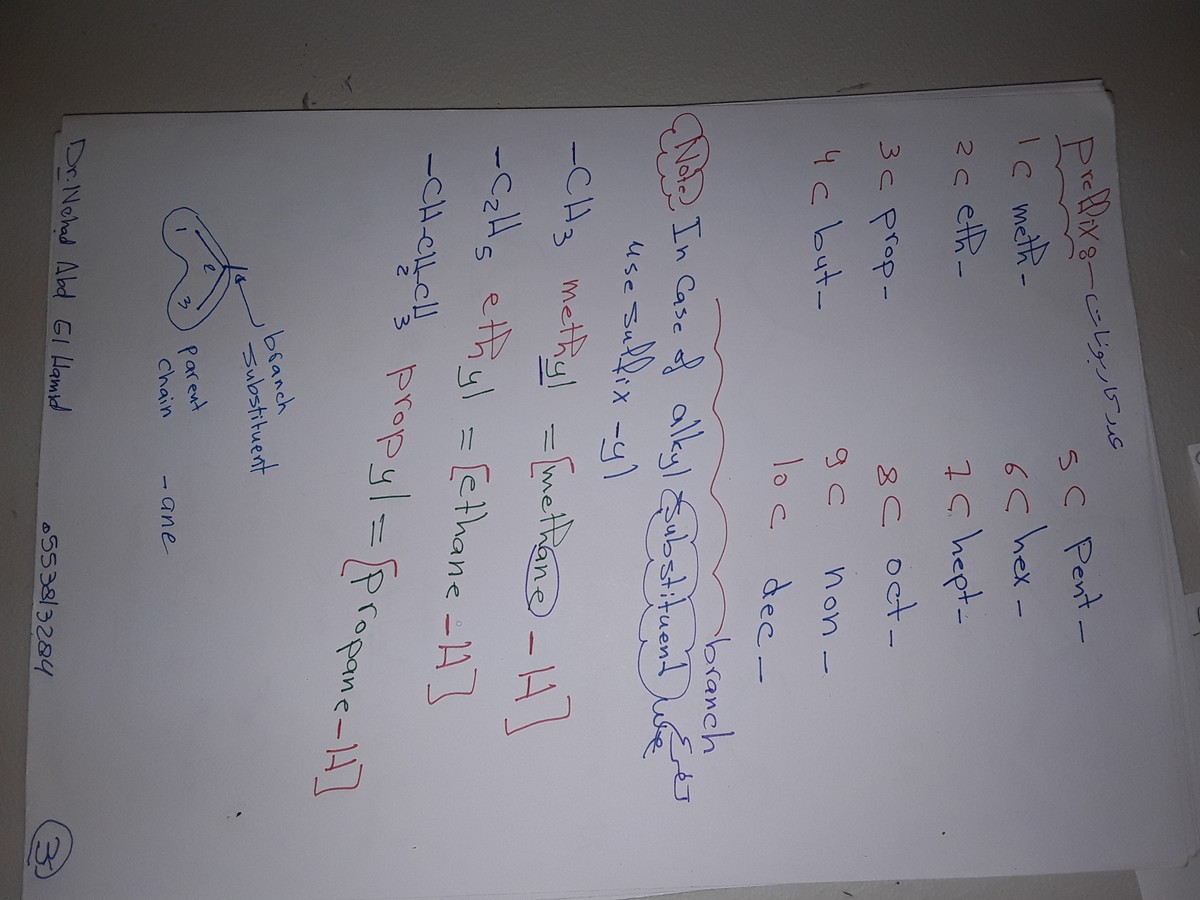 Preffix:- عدد الكربونات
1C meth-
2C eth-
3C prop-
4C but-
5C pent-
6C hex-
7C hept-
8C oct-
9C non-
10C dec-
branch
Note: In Case of alkyl Substituend
use suffix -yl
-CH3 methyl = [methane - H]
-C2H5 ethyl = [ethane - H]
-CH-CH2CH3 propyl = [Propane - H]
branch
substituent
1 2 3
parent
chain -ane
Dr. Nehad Abd El Hamid 0553813284
3